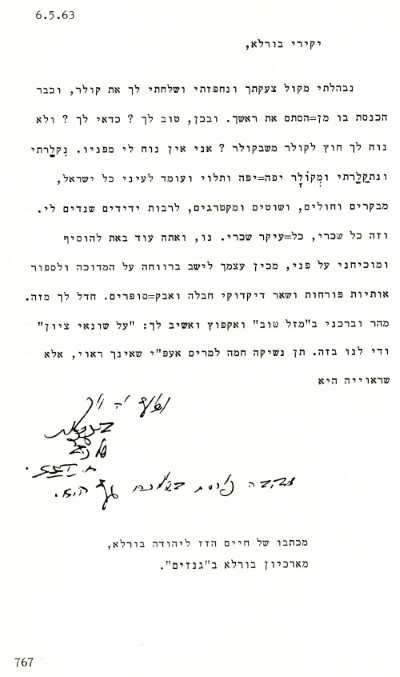 6.5.63
יקירי בורלא,
נבהלתי מקול צעקתך ונחפזתי ושלחתי לך את קולר, וכבר
הכנסת בו מן=הסתם את ראשך. ובכן, טוב לך ? כדאי לך ? ולא
נוח לך חוץ לקולר משבקולר ? אני אין נוח לי מפניו. נִקְלַרתי
ונתקַלַרתי ומְקוֹלָר יפה=יפה ותלוי ועומד לעיני כל ישראל,
מבקרים וחולים, ושוטים ומקטרגים, לרבות ידידים שנדים לי.
וזה כל שכרי, כל=עיקר שכרי. נו, ואתה עוד באת להוסיף
ומוכיחני על פני, מכין עצמך לישב ברווחה על המדוכה ולספור
אותיות פורחות ושאר דיקדוקי חבלה ואבק=סופרים. חדל לך מזה.
מהר וברכני ב"מזל טוב" ואקפוץ ואשיב לך: "על שונאי ציון"
ודי לנו בזה. תן נשיקה חמה למרים אעפ"י שאינך ראוי, אלא
שראוייה היא
היא.
מכתבו של חיים הזז ליהודה בורלא,
מארכיון בורלא ב"גנזים".
767